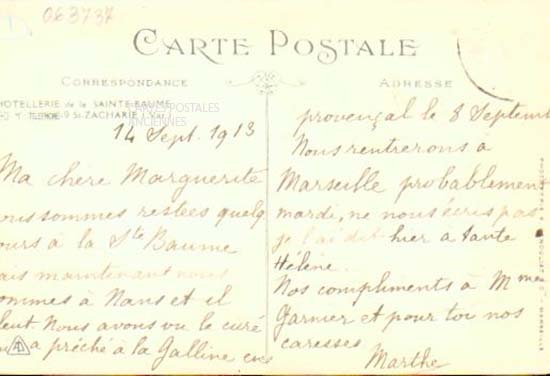 063737
CARTE POSTALE
CORRESPONDANCE
ADRESSE
HOTELLERIE de la SAINTE-BAUME
TELEPHONE-9 St-ZACHARIE (Var)
CARTES POSTALES
ANCIENNES
14 Sept. 1913
Ma chère Marguerite
nous sommes restées quelq
ours à la Ste Baume
ais maintenant nous
ommes à Nans et il
leut. Nous avons vu le curé
a prêché à la Galline en
provençal le 8 Septemb
Nous rentrerons à
Marseille probablement
mardi, ne nous écris pas
je l'ai dit hier à tante
Hélène.
Nos compliments à Mme
Garnier et pour toi nos
caresses
Marthe